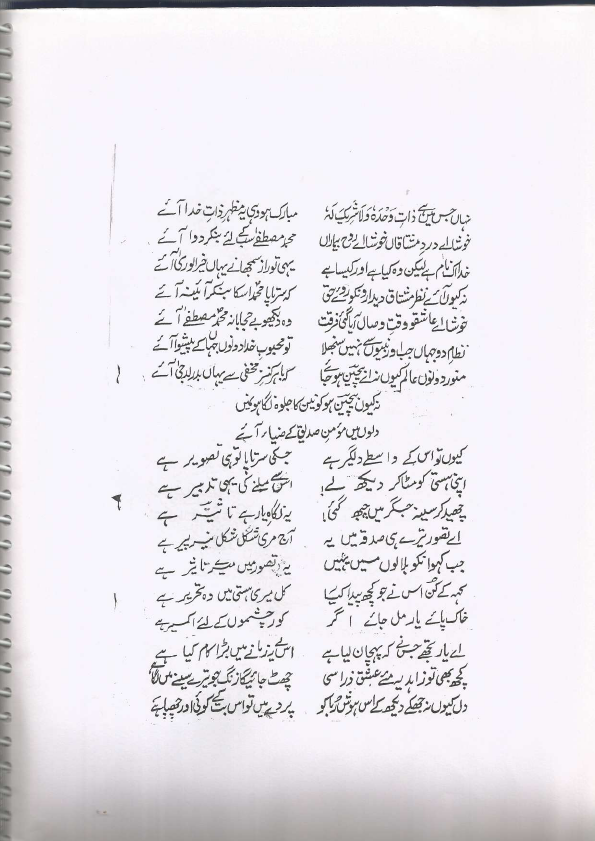 نہاں جس میں ہے ذات وَحْدَہٗ وَلَا شَرِیکَ لَہٗ مبارک ہو وہی یہ مظہرِ ذاتِ خدا آئے
خوشا اے دردِ مشتاقاں خوشا اے روحِ بیماراں محمد مصطفےٰ سب کے لئے بنکر دوا آئے
خدا اک نام ہے لیکن وہ کیا ہے اور کیسا ہے یہی تو راز سمجھانے یہاں خیرالوریٰ آئے
نہ کیوں آئے نظر مشتاق دیدار و نکو روئے حق کہ سرتاپا محمد اسکا بنکر آئینہ آئے
خوشا اے عاشقو وقتِ وصال آیا گئی فرقت وہ دیکھو بے حجابانہ محمد مصطفےٰ آئے
نظامِ دو جہاں جب اور نبیوں سے نہیں سنبھلا تو محبوبِ خدا دونوں جہاں کے پیشوا آئے
منور دونوں عالم کیوں نہ اے بچین ہو جائے کہ باہر کنزِ مخفی سے یہاں بدرالدجیٰ آئے
نہ کیوں بچین ہو کونین کا جلوہ نگاہوں میں
دلوں میں مؤمن صدیق کے ضیاء آئے
کیوں تو اس کے واسطے دلگیر ہے جسکی سرتاپا تو ہی تصویر ہے
اپنی ہستی کو مٹا کر دیکھ لے! اس سے ملنے کی یہی تدبیر ہے
چھید کر سینہ جگر میں چبھ گئی! یہ نگاہِ یار ہے تا تیر ہے
اے تصور تیرے ہی صدقہ میں یہ آج مری شکل شکل پیر ہے
جب کہو انکو بلا لوں میں یہیں یہ تصور میں مرے تاثیر ہے
کہہ کے کُن اس نے جو کچھ پیدا کیا کل میری ہستی میں وہ تحریر ہے
خاک پائے یار مل جائے اگر کور چشموں کے لئے اکسیر ہے
اے یار تجھے جس نے کہ پہچان لیا ہے اس نے زمانے میں بڑا کام کیا ہے
کچھ بھی تو زاہد پہ مئے عشق ذرا سی چھٹ جائیگا زنگ جو تیرے سینے میں لگا ہے
دل کیوں نہ جھکے دیکھ کے اس ہوش رُبا کو پردے میں تو اس بت کے کوئی اور چھپا ہے